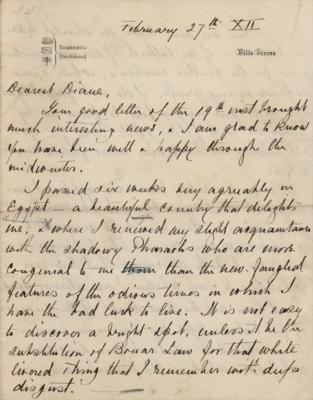 February 27th XII
SORRENTO
Villa Siraca
Dearest Diane,
Your good letter of the 19th inst brought
much interesting news, & I am glad to know
you have been well & happy through the
midwinter.
I passed six weeks very agreeably in
Egypt – a beautiful country that delights
me, & where I renewed my slight acquaintance
with the shadowy Pharaohs who are more
congenial to me than than the new-fangled
features of the odious times in which I
have the bad luck to live. It is not easy
to discover a bright spot, unless it be the
substitution of Bonar Law for that white
livered thing that I remember with deep
disgust.